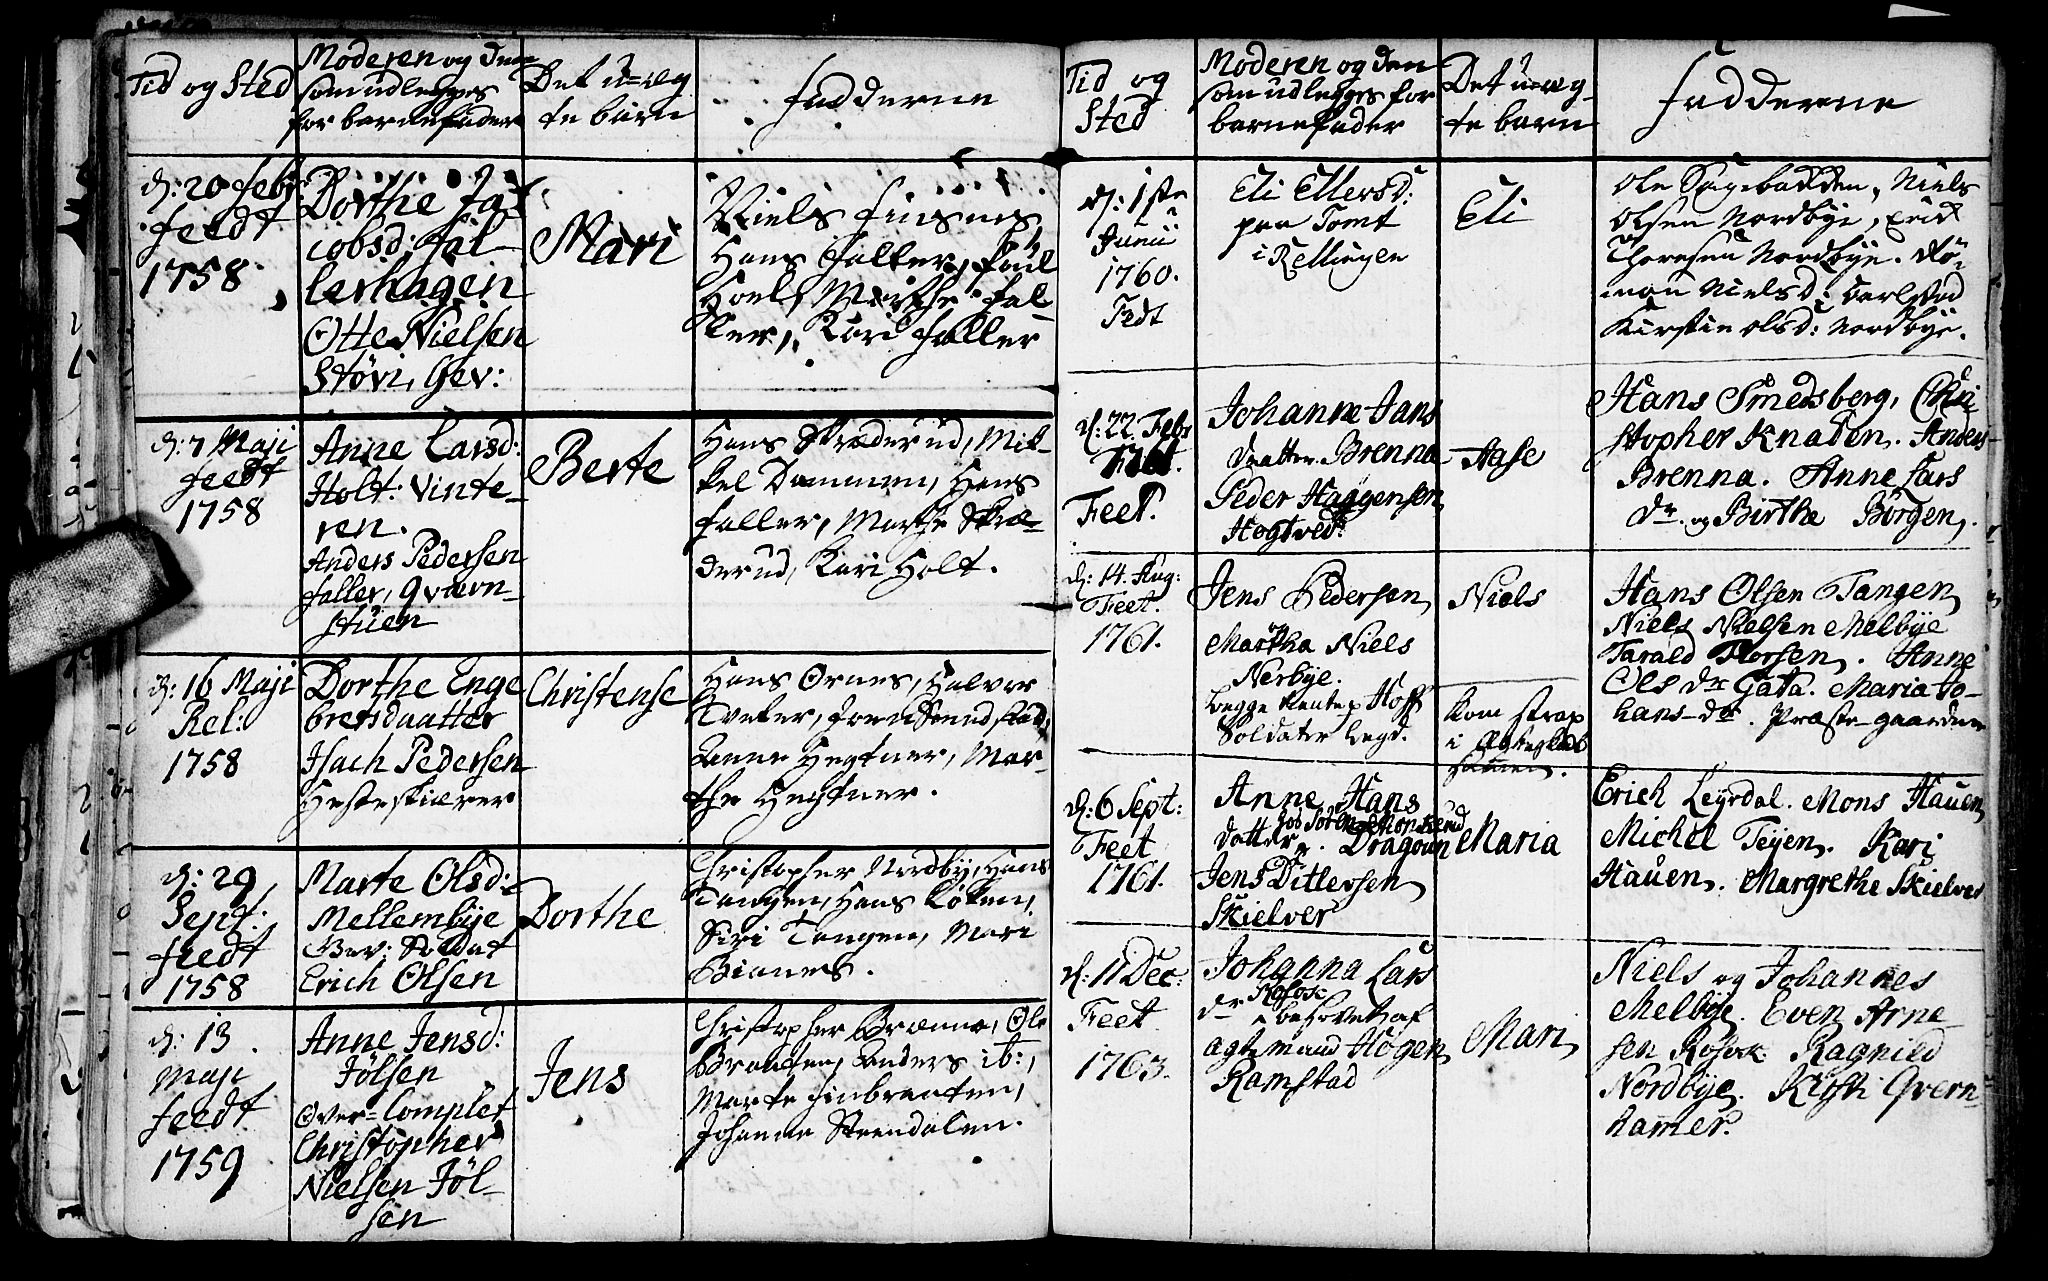 Tid og Sted
Moderen og den
som udlegges
for barnefader
Det u=æg
te barn
Fadderne
d: 20 Febr
Feedt
1758
Dorthe Ja
cobsd: Fal
lerhagen
Otte Nielsen
Støvi, Gev:
Mari
Niels Finsnes,
Hans Faller, Poul
Hoel, Marthe Fal
ler, Kari Faller
d: 7 Maji
Feedt
1758
Anne Larsd:
Holt: Vinte-
ren.
Anders Pedersen
Faller, Qværn-
stuen
Berte
Hans Skræderud, Mik-
kel Dammen, Hans
Faller, Marthe Skræ-
derud, Kari Holt.
d: 16 Maji
Rel:
1758
Dorthe Enge
bretsdaatter
Isach Pedersen
Hesteskiærer
Christense
Hans Ornes, Halvor
Tveter,
Anne Hegtner, Mar-
the Hegtner.
d: 29
Sept:
Feedt
1758
Marte Olsd:
Mellembye
Gev: Soldat
Erich Olsen
Dorthe
Christopher Nordby, Hans
Tangen, Hans Løken,
Siri Tangen, Mari
Bianes.
d: 13
Maji
Feedt
1759
Anne Jensd:
Jølsen
Over=Complet
Christopher
Nielsen Jøl-
sen
Jens
Christopher Brænna, Ole
Braaten, Anders ib:,
Marte Finbraaten,
Johanne Steendalen.
Tid og
Sted
Moderen og den
som udlegges for
barnefader
Det u=æg-
te barn
Fadderne
d: 1ste
Junii
1760.
Fedt
Eli Ellersd:
paa Tomt
i Rellingen
Eli
Ole Sagebakken, Niels
Olsen Nordbye, Erik
Thoresen Nordbye.
Nielsd:
Kirstin Olsd: Nordbye.
d: 22. Febr
1761.
Feet.
Johanne Hans
daatter Brenna
Peder Haagensen
Hogtvedt
Aase
Hans Smedsberg, Chri
stopher Knaden. Anders
Brenna. Anne Lars
dr. og Birthe Børgen.
d: 14. Aug:
Feet.
1761.
Jens Pedersen
og
Martha Niels
Nerbye.
begge Hoff
Soldater legd.
Niels
kom strax
i Ægteskab
sammen.
Hans Olsen Tangen
Niels Nielsen Melbye
Tarald Torsen. Anne
Ols dr Gata. Maria Jo-
hans-dr. Præste-gaarden
d: 6 Sept:
Feet
1761.
Anne Hans
datter Dragoun
Jens Ditlevsen
Skielver
Maria
Erich Leyrdal. Mons Hauen
Michel Teyen. Kari
Hauen. Margrethe Skielver
d: 11 Dec:
Feet
1763.
Johanna Lars
dr Rosos:
besovet af
agte mand Høgen
Ramstad
Mari
Niels og Johannes
Melbye. Even Arne-
sen Rosos: Ragnild
Nordbye. Kisti Qvern-
hammer.